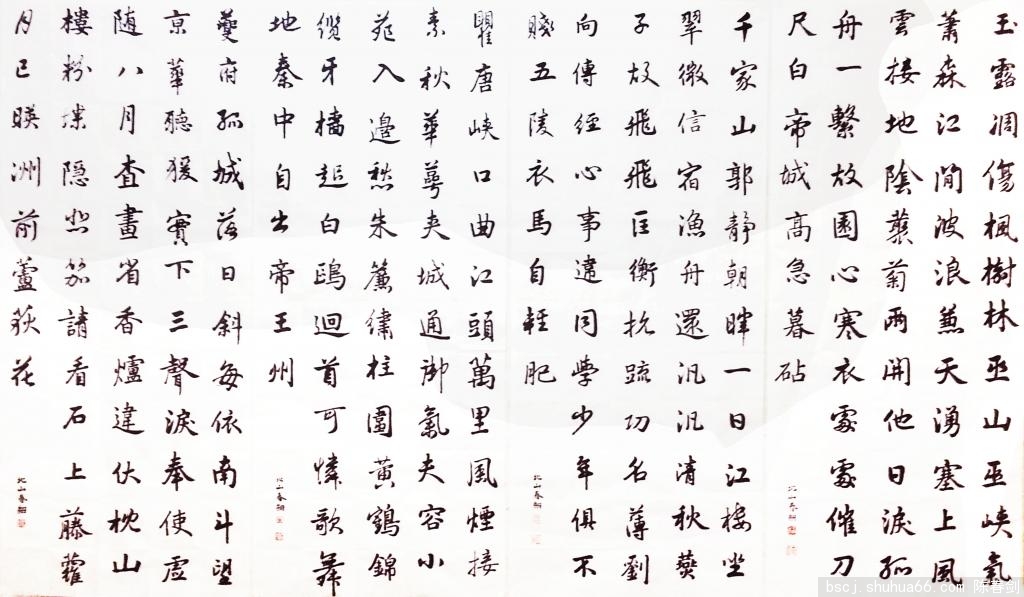 玉露凋傷楓樹林巫山巫峽氣
蕭森江間波浪兼天湧塞上風
雲接地陰叢菊兩開他日淚孤
舟一繫故園心寒衣處處催刀
尺白帝城高急暮砧
千家山郭靜朝暉一日江樓坐
翠微信宿漁舟還汎汎清秋燕
子故飛飛匡衡抗疏功名薄劉
向傳經心事違同學少年俱不
賤五陵衣馬自輕肥
瞿唐峽口曲江頭萬里風煙接
素秋華萼夾城通御氣夫容小
苑入邊愁朱簾繡柱圍黃鶴錦
纜牙檣起白鷗迴首可憐歌舞
地秦中自古帝王州
夔府孤城落日斜每依南斗望
京華聽猨實下三聲淚奉使虛
随八月查畫省香爐違伏枕山
樓粉堞隱悲笳請看石上藤蘿
月已映洲前蘆荻花
bscj.shuhua66.com 陈春剑